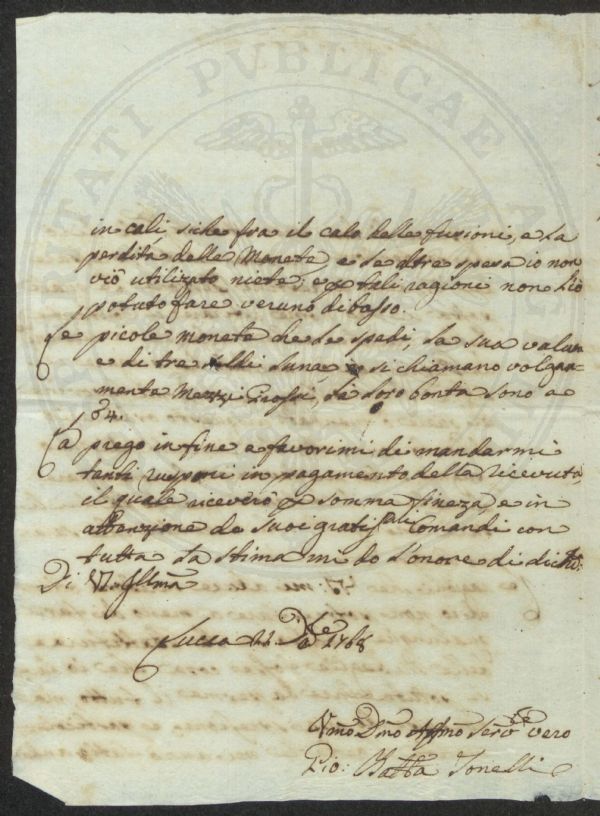 VERITATI PVBLICAE
in cali, siche fra il calo delle fusioni, e la
perdita delle Monete, e le altre spese io non
viò utilizato niete, e p tali ragioni non hò
potuto fare veruno dibasso.
Le picole monete che le spedi, la sua valuta
e di tre soldi luna, e si chiamano volgar-
mente Mezzi Grossi, la loro bonta sono a
La prego in fine a favorirmi di mandarmi
tanti rusponi in pagamento della ricevuta,
il quale riceverò p somma finezza, e in
attenzione de suoi gratis.mi Comandi con
tutta la stima mi do l'onore di dichi:
Di V. Illma
Lucca 22 1768
Vmo Dmo Affmo Serv.e vero
Gio: Batta Tonelli